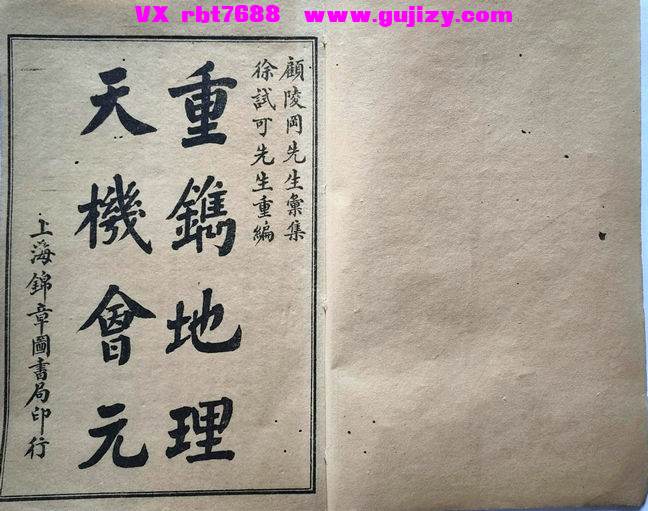 VX rbt7688 www.gujizy.com
顧陵岡先生彙集
徐試可先生重編
重鐫地理
天機會元
上海錦章圖書局印行